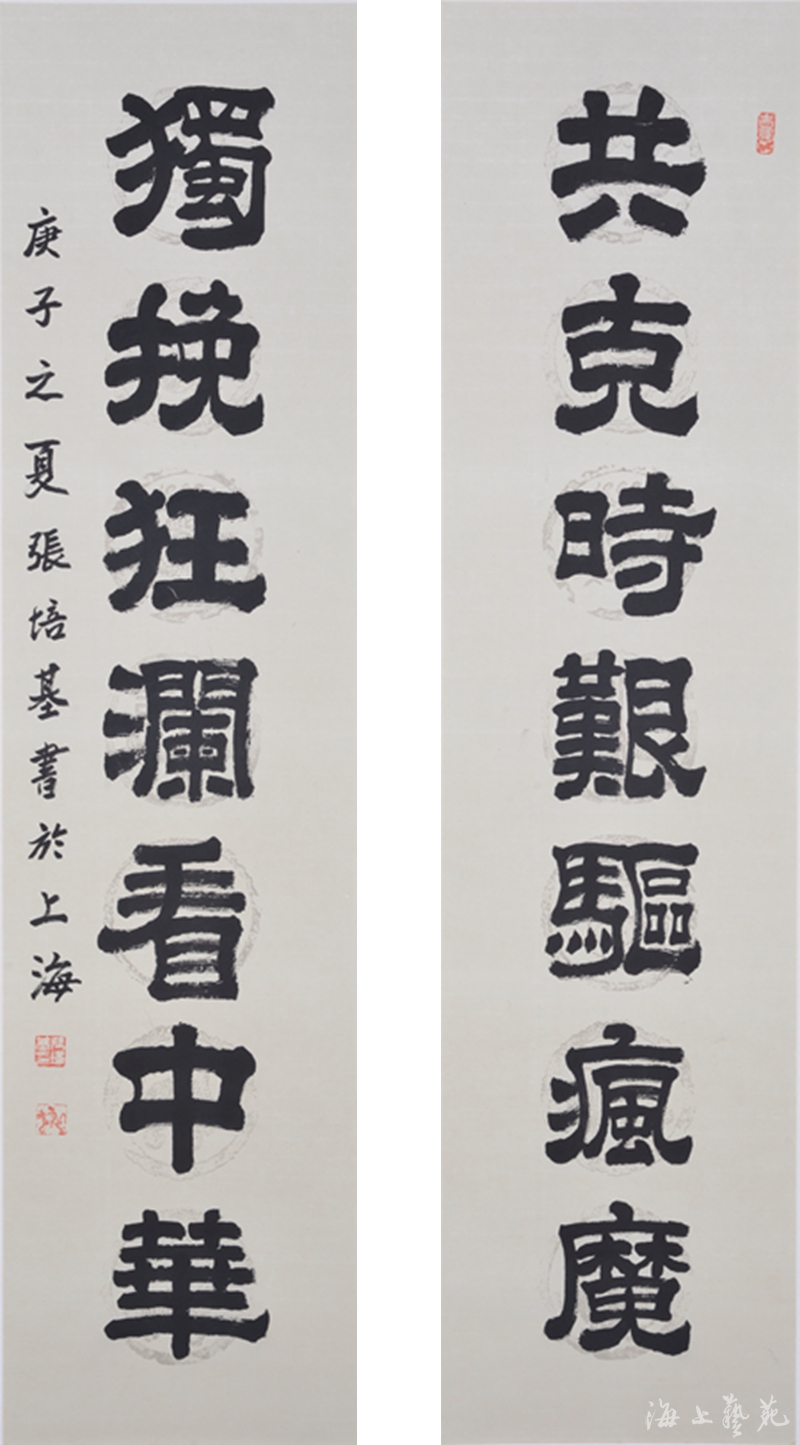 共克時艱驅瘋魔
獨挽狂瀾看中華
庚子之夏張培基書於上海
海上藝苑